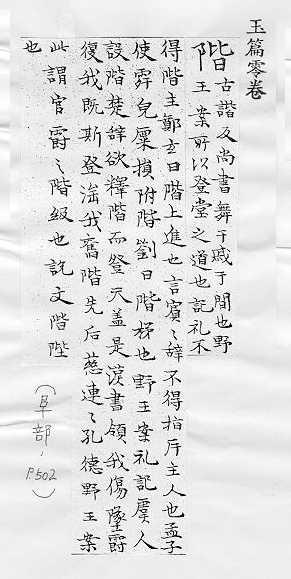 玉篇零卷
階古諧反尚書舞干戚于間也野
王案所以登堂之道也記礼不
得階主鄭玄曰階上進也言賓〻辝不得指斥主人也孟子
使舜皃廩損附階劉曰階梯也野王案礼記虞人
設階楚辝欲釋階而登天盖是漢書領我傷墜爵
復我既斯登濫我舊階先后慈連〻孔德野王案
此謂官爵〻階级也說文階陛
也
（阜部，P.502）